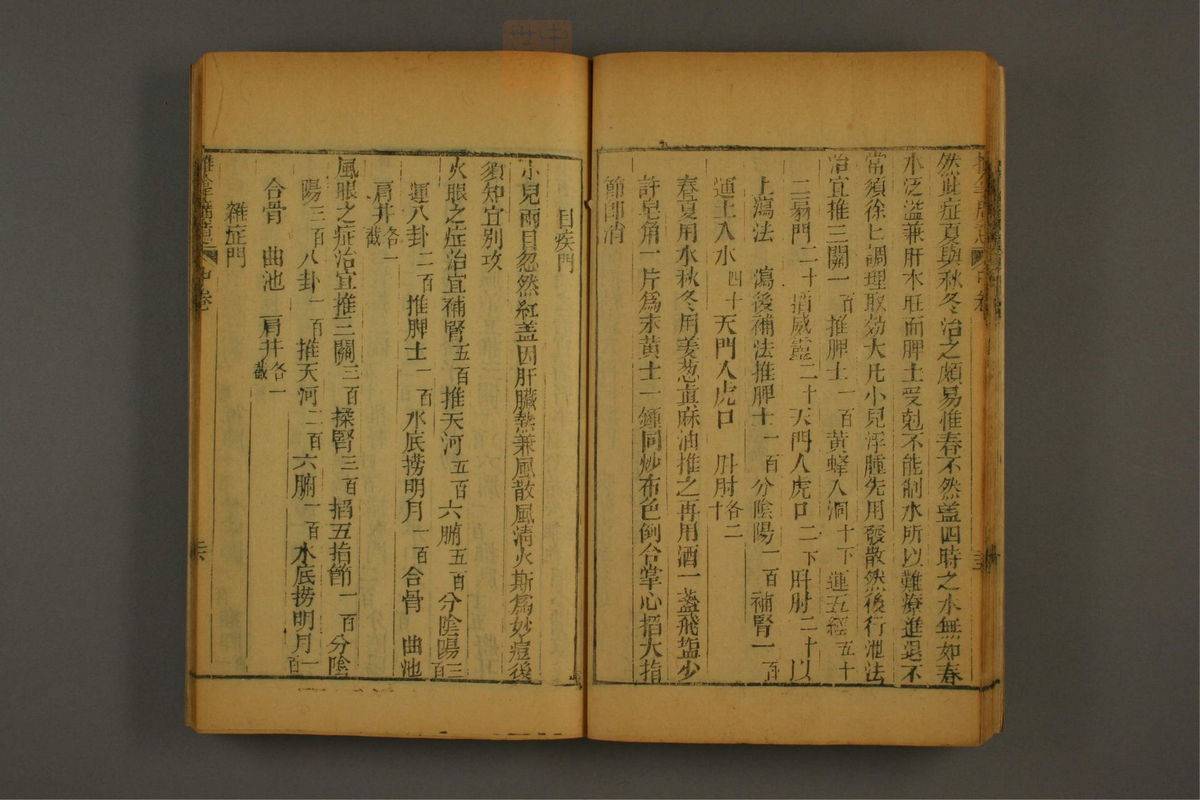 然此症夏與秋冬治之頗易惟春不然盖四時之水無如春
水泛濫兼肝木旺而脾土受尅不能制水所以難療進退不
常須徐匕調理取効大凡小兒浮腫先用發散然後行泄法
治宜推三關一百推脾土一百黄蜂入洞十下運五經五十
二扇門二十掐威靈二十天門入虎口二下肝肘二十以
上瀉法 瀉後補法推脾土一百分陰陽一百補腎一百
運土入水四十天門入虎口 肘各二十
春夏用水秋冬用姜葱真麻油推之再用酒一盞飛塩少
許皂角一片爲末黄土一鍾同炒布包倒合掌心掐大指
節即消
目疾門
小兒兩目忽然紅盖因肝臟熱兼風散風清火斯爲妙痘後
須知宜别攻
火眼之症治宜補腎五百推天河五百六腑五百分陰陽三百
運八卦二百推脾土一百水底撈明月一百合骨 曲池
肩井各一截
風眼之症治宜推三關三百揉腎三百掐五指節一百分陰
陽三百八卦一百推天河二百六腑一百水底撈明月一百
合骨 曲池 肩井各一截
雜症門
中卷